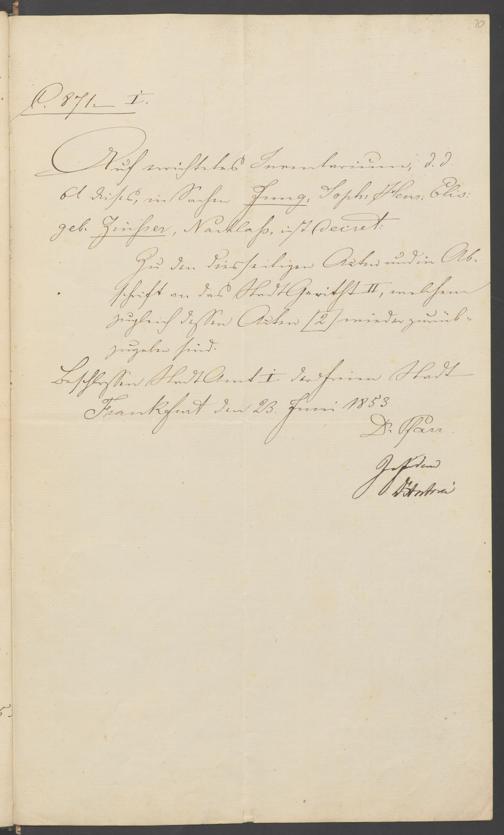 70
C. 871. I.
Auf errichtetes Inventarium, d. d.
dieses, in Sachen Jung, Soph. Elis.
geb. Nachlass, ist Decret:
Zu den diesseitigen Acten und in Ab-
schrift an das Stadt Gericht II, welchem
zugleich dessen Acten (2) wieder zurück-
zugeben sind.
Beschlossen Stadt Amt I der freien Stadt
Frankfurt den 23. Juni 1853
Dr.